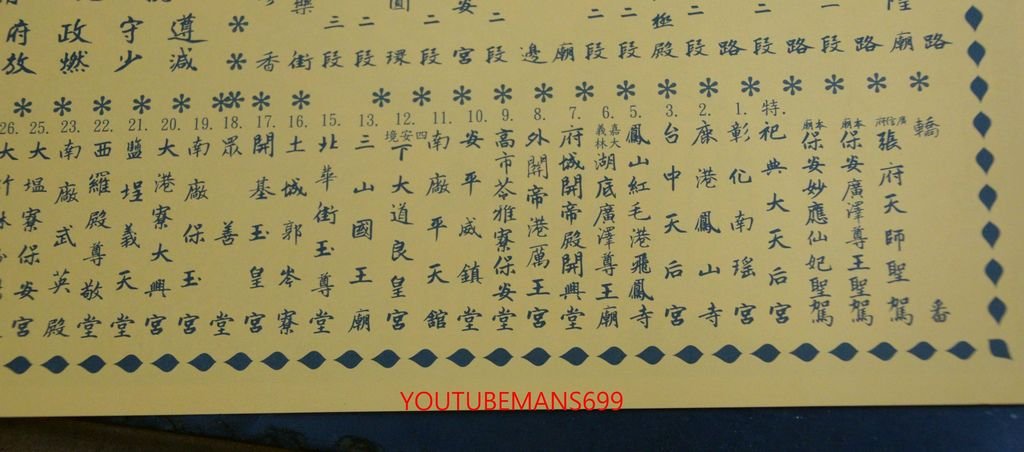 轎番
府信居張府天師聖駕
本廟保安廣澤尊王聖駕
本廟保安妙應仙妃聖駕
特.祀典大天后宮
1.彰化南瑤宮
2.鹿港鳳山寺
3.台中天后宮
5.鳳山紅毛港飛鳳寺
6.嘉義大林湖底廣澤尊王廟
7.府城開帝殿開興堂
8.外開帝港厲王宮
9.高市苓雅寮保安堂
10.安平威鎮堂
11.南廠平天館
12.四安境下大道良皇宮
13.三山國王廟
15.北華街玉尊堂
16.土城郭岑寮
17.開基玉皇宮
18.眾善堂
19.南廠保玉宮
20.大港寮大興宮
21.鹽埕義天堂
22.西羅殿尊敬堂
23.南廠武英殿
25.大塭寮保安宮
26.大
路 廟 路 段 路 段 路 段 殿 段 段 廟 邊 段 宮 段 環 段 段 街 香
遵 守 政 府
減 少 燃 放
YOUTUBEMANS699